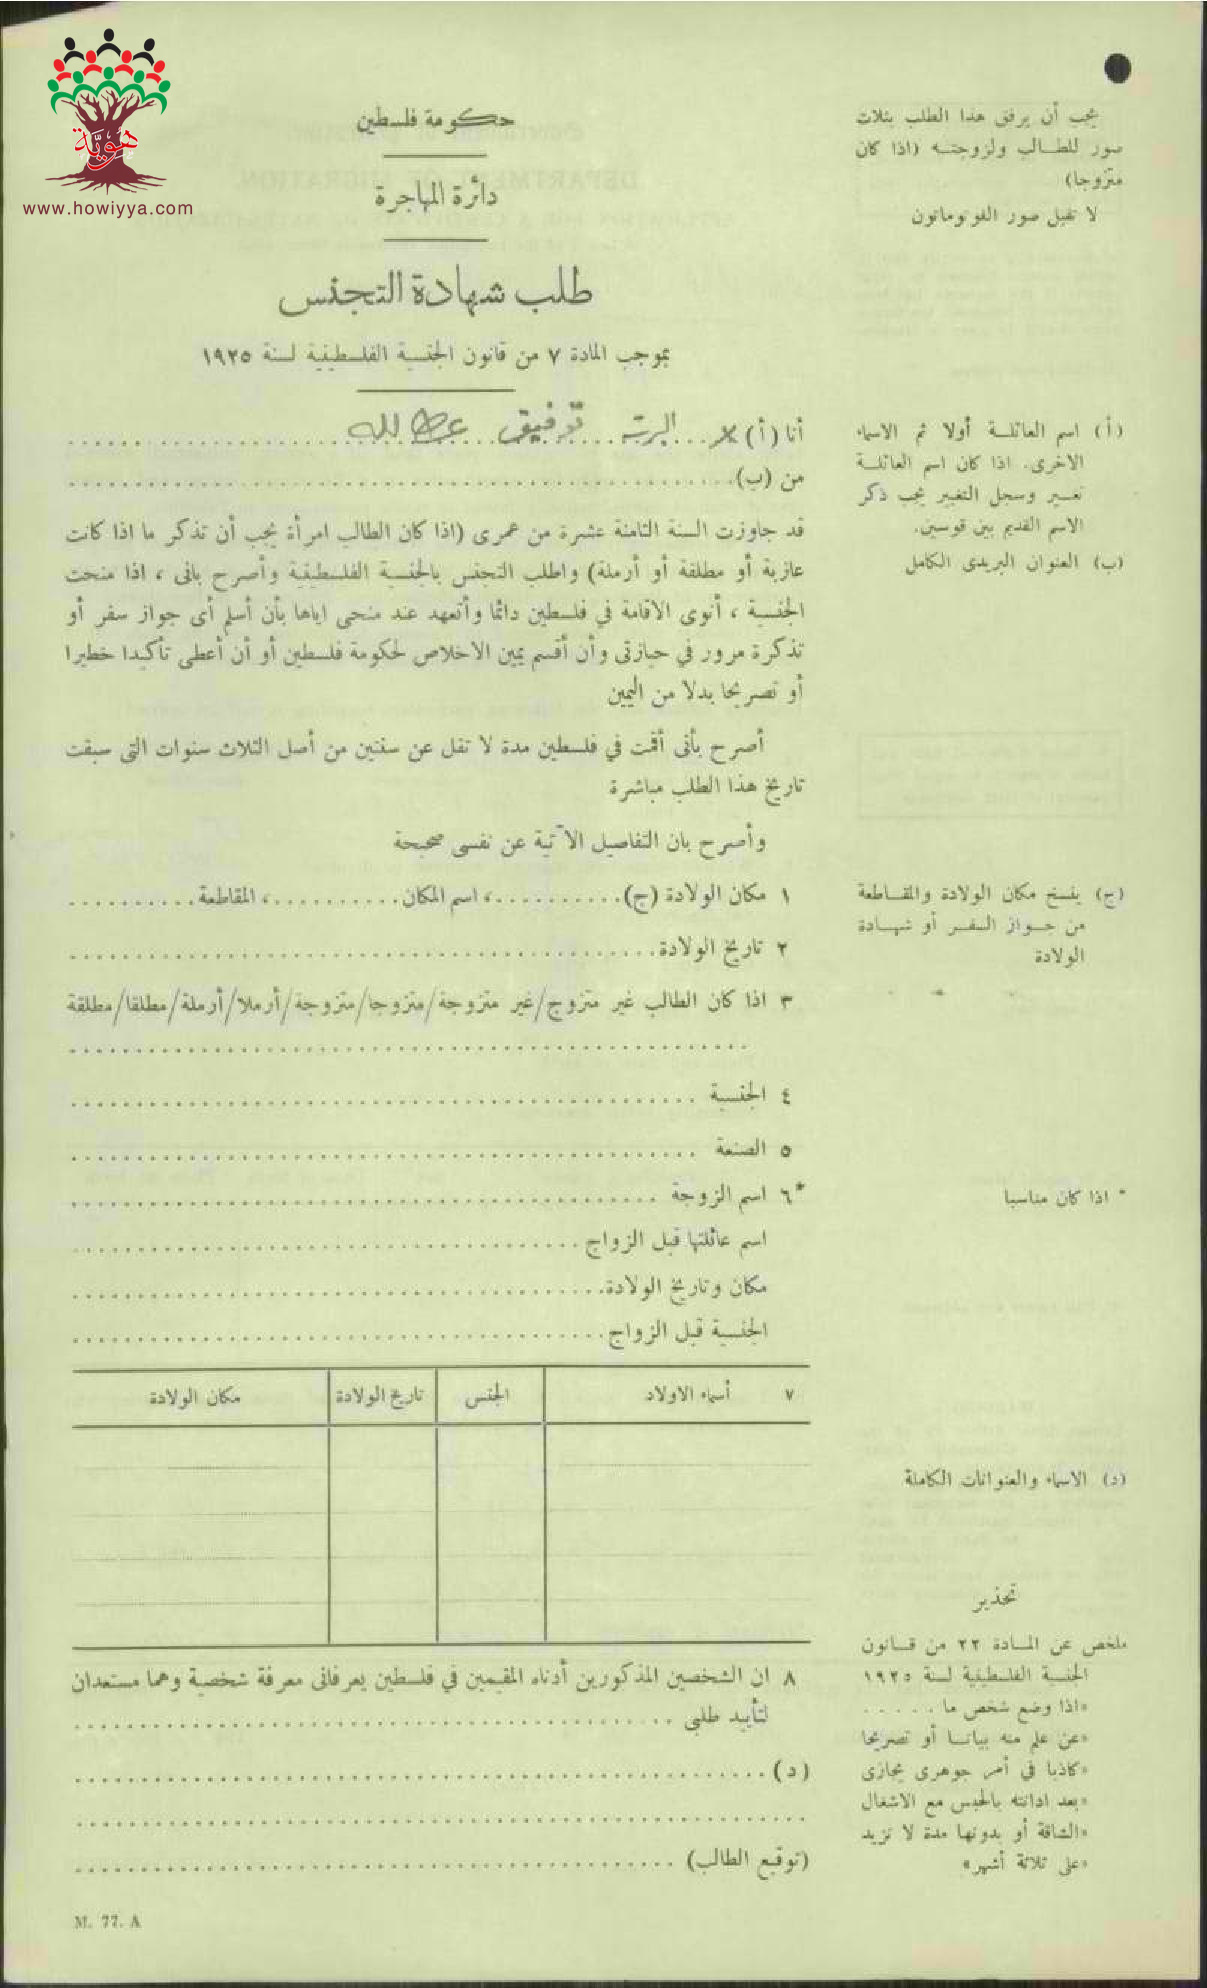 هوية
www.howiyya.com
حكومة فلسطين
دائرة المهاجرة
طلب شهادة التجنس
بموجب المادة ٧ من قانون الجنسية الفلسطينية لسنة ١٩٢٥
يجب أن يرفق هذا الطلب بثلاث
صور للطالب ولزوجته (اذا كان
متزوجا)
لا تقبل صور الفوتوماتون
أنا (أ) البرت توفيق عطالله
من (ب)
(أ) اسم العائلة أولا ثم الاسماء
الاخرى. اذا كان اسم العائلة
تغير وسجل التغيير يجب ذكر
الاسم القديم بين قوسين.
(ب) العنوان البريدى الكامل
قد جاوزت السنة الثامنة عشرة من عمرى (اذا كان الطالب امرأة يجب أن تذكر ما اذا كانت
عازبة أو مطلقة أو أرملة) واطلب التجنس بالجنسية الفلسطينية وأصرح بانى ، اذا منحت
الجنسية ، أنوى الاقامة في فلسطين دائما وأتعهد عند منحى اياها بأن أسلم أى جواز سفر أو
تذكرة مرور في حيازتى وأن أقسم يمين الاخلاص لحكومة فلسطين أو أن أعطى تأكيدا خطيرا
أو تصريحا بدلا من اليمين
أصرح بأنى أقمت في فلسطين مدة لا تقل عن سنتين من أصل الثلاث سنوات التى سبقت
تاريخ هذا الطلب مباشرة
وأصرح بان التفاصيل الآتية عن نفسى صحيحة
١ مكان الولادة (ج)..........، اسم المكان..........، المقاطعة..........
(ج) ينسخ مكان الولادة والمقاطعة
من جواز السفر أو شهادة
الولادة
٢ تاريخ الولادة
٣ اذا كان الطالب غير متزوج/غير متزوجة/متزوجا/متزوجة/أرملا/أرملة/مطلقا/مطلقة
٤ الجنسية
٥ الصنعة
*٦ اسم الزوجة
* اذا كان مناسبا
اسم عائلتها قبل الزواج
مكان وتاريخ الولادة
الجنسية قبل الزواج
٧ أسماء الاولاد الجنس تاريخ الولادة مكان الولادة
(د) الاسماء والعنوانات الكاملة
٨ ان الشخصين المذكورين أدناه المقيمين في فلسطين يعرفانى معرفة شخصية وهما مستعدان
لتأييد طلبى
(د)
(توقيع الطالب)
تحذير
ملخص عن المادة ٢٢ من قانون
الجنسية الفلسطينية لسنة ١٩٢٥
«اذا وضع شخص ما . . . . .
«عن علم منه بيانا أو تصريحا
«كاذبا في أمر جوهرى يجازى
«بعد ادانته بالحبس مع الاشغال
«الشاقة أو بدونها مدة لا تزيد
«على ثلاثة أشهر»
M. 77. A